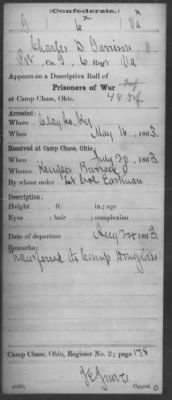 (Confederate.)
G 6 Va
Charles D Garrison
Pvt., Co. G, 6 Reg't Va
Appears as a Descriptive Roll of
Prisoners of War
at Camp Chase, Ohio.
Arrested:
Where
When May 16, 1863
Received at Camp Chase, Ohio:
When July 20, 1863
Whence Kemper Barracks
By whose order Lt Col Eastman
Description:
Height ft. in.; age
Eyes ; hair ; complexion
Date of departure Aug 1863
Remarks:
transferred to Camp Douglass
Camp Chase, Ohio, Register No. 2; page 178
Copyist.